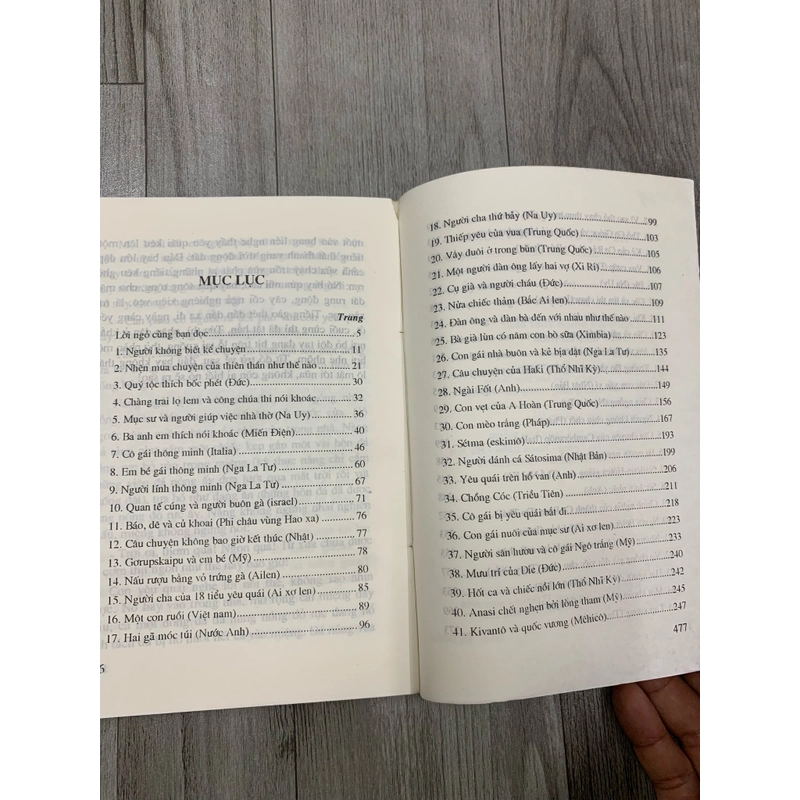 MỤC LỤC
Trang
Lời ngỏ cùng bạn đọc 5
1. Người không biết kể chuyện 11
2. Nhện mua chuyện của thiên thần như thế nào 21
3. Quý tộc thích bốc phét (Đức) 30
4. Chàng trai lọ lem và công chúa thí nói khoác 32
5. Mục sư và người giúp việc nhà thờ (Na Uy) 36
6. Ba anh em thích nói khoác (Miến Điện) 40
7. Cô gái thông minh (Italia) 46
8. Em bé gái thông minh (Nga La Tư) 60
9. Người lính thông minh (Nga La Tư) 67
10. Quan tế cúng và người buôn gà (israel) 71
11. Báo, dê và củ khoai (Phi châu vùng Hao xa) 76
12. Câu chuyện không bao giờ kết thúc (Nhật) 77
13. Gorupskaipu và em bé (Mỹ) 78
14. Nấu rượu bằng vỏ trứng gà (Ailen) 80
15. Người cha của 18 tiểu yêu quái (Ai xơ len) 85
16. Một con ruồi (Việt nam) 89
17. Hai gã móc túi (Nước Anh) 96
6
18. Người cha thứ bảy (Na Uy) 99
19. Thiếp yêu của vua (Trung Quốc) 103
20. Vảy đuôi ở trong bùn (Trung Quốc) 105
21. Một người đàn ông lấy hai vợ (Xi Ri) 106
22. Cụ già và người cháu (Đức) 107
23. Nửa chiếc thảm (Bắc Ai len) 109
24. Đàn ông và đàn bà đến với nhau như thế nào 111
25. Bà già lùn có năm con bò sữa (Ximbia) 123
26. Con gái nhà buôn và kẻ bịa đặt (Nga La Tư) 135
27. Câu chuyện của Haki (Thổ Nhĩ Kỳ) 144
28. Ngài Fốt (Anh) 149
29. Con vẹt của A Hoàn (Trung Quốc) 156
30. Con mèo trắng (Pháp) 167
31. Sétma (eskimô) 193
32. Người đánh cá Sátosima (Nhật Bản) 199
33. Yêu quái trên hồ van (Anh) 206
34. Chồng Cóc (Triều Tiên) 211
35. Cô gái bị yêu quái bắt đi 218
36. Con gái nuôi của mục sư (Ai xơ len) 223
37. Người săn hươu và cô gái Ngô trắng (Mỹ) 233
38. Mưu trí của Die (Đức) 240
39. Hốt ca và chiếc nồi lớn (Thổ Nhĩ Kỳ) 242
40. Anasi chết nghẹn bởi lòng tham (Mỹ) 245
41. Kivantô và quốc vương (Mêhicô) 247
477